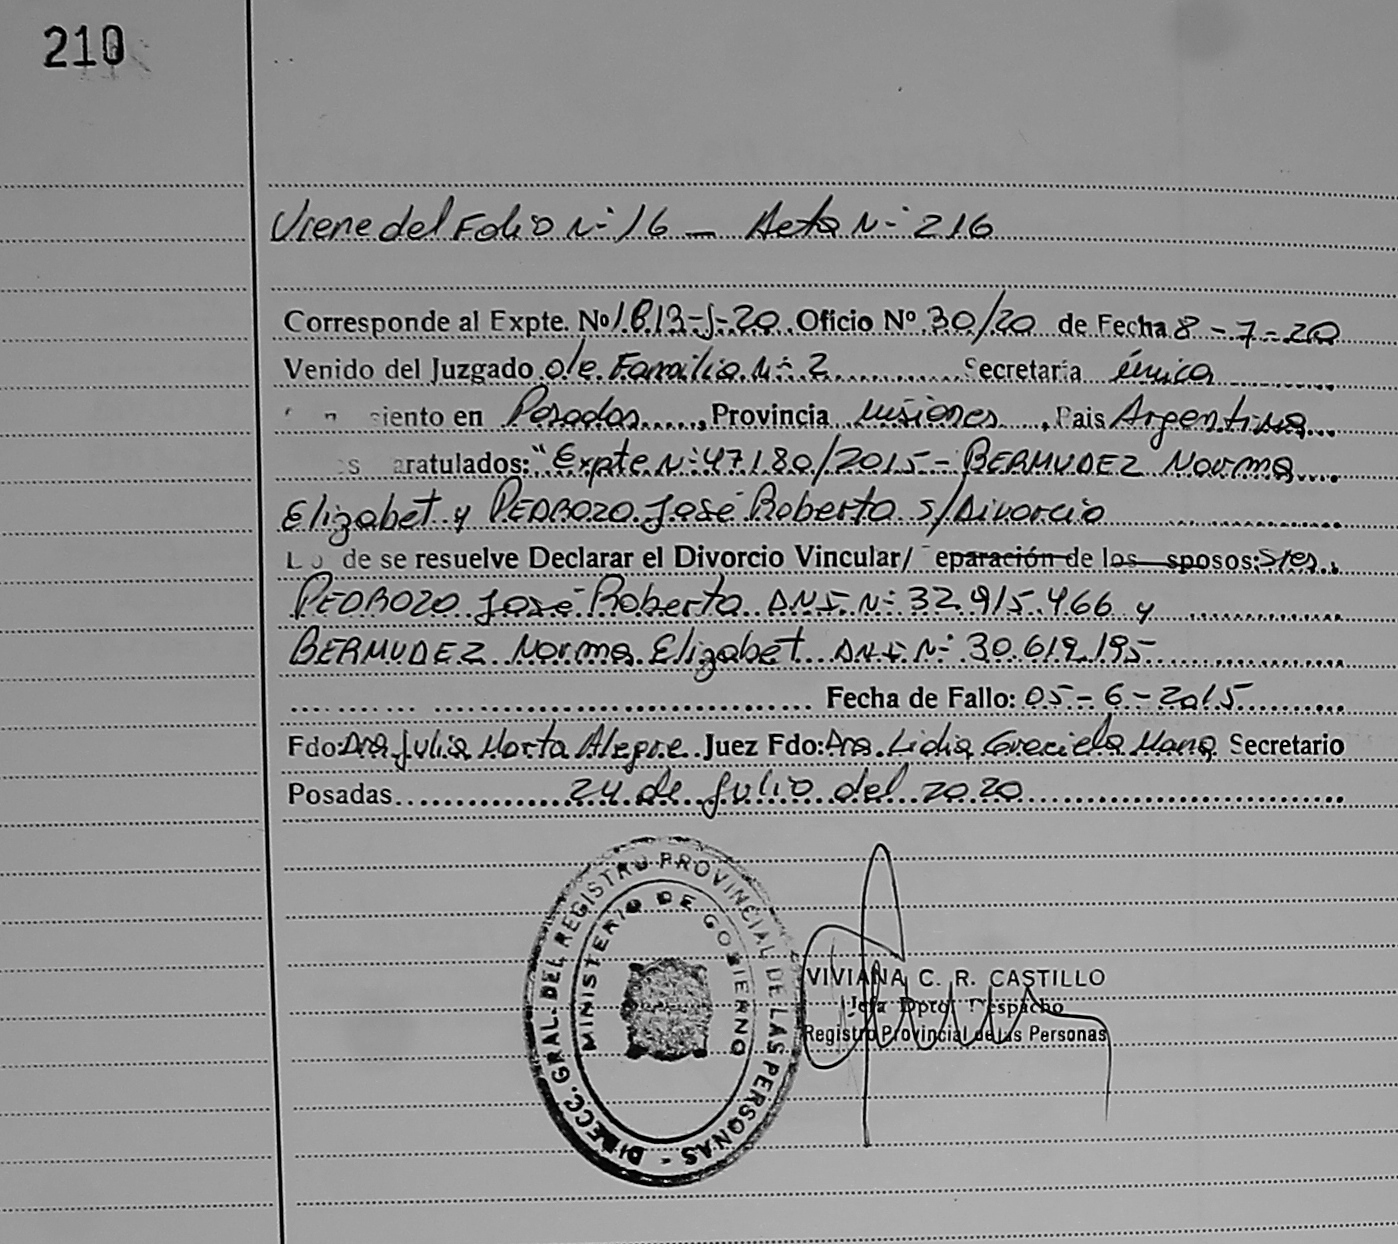 210
Viene del Folio N° 16 — Acta N° 216
Corresponde al Expte. Nº 1813-J-20 Oficio Nº 30/20 de Fecha 8-7-20
Venido del Juzgado de Familia N° 2 Secretaría única
siento en Posadas, Provincia Misiones, Pais Argentina
aratulados: "Expte N° 47180/2015 - BERMUDEZ Norma
Elizabet y PEDROZO José Roberto s/Divorcio
de se resuelve Declarar el Divorcio Vincular/ eparación de los sposos: Sres.
PEDROZO José Roberto D.N.I. N° 32.915.466 y
BERMUDEZ Norma Elizabet D.N.I. N° 30.619.195-
Fecha de Fallo: 05-6-2015
Fdo: Dra Julia Marta Alegre Juez Fdo: Dra. Lidia Graciela Secretario
Posadas 24 de Julio del 2020
DIRECC. GRAL. DEL REGISTRO PROVINCIAL DE LAS PERSONAS -
MINISTERIO DE GOBIERNO
VIVIANA C. R. CASTILLO
Jefa Dpto. Despacho
Registro Provincial de las Personas